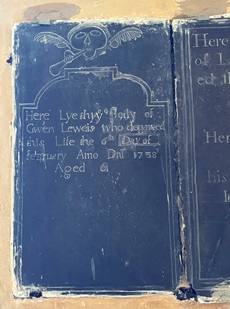 Here Lyeth yᵉ Body of
Gwen Leweis who departed
this Life the 6th Day of
february Anno Dni 1738
Aged 61
Here
of L
ed th
Her
his